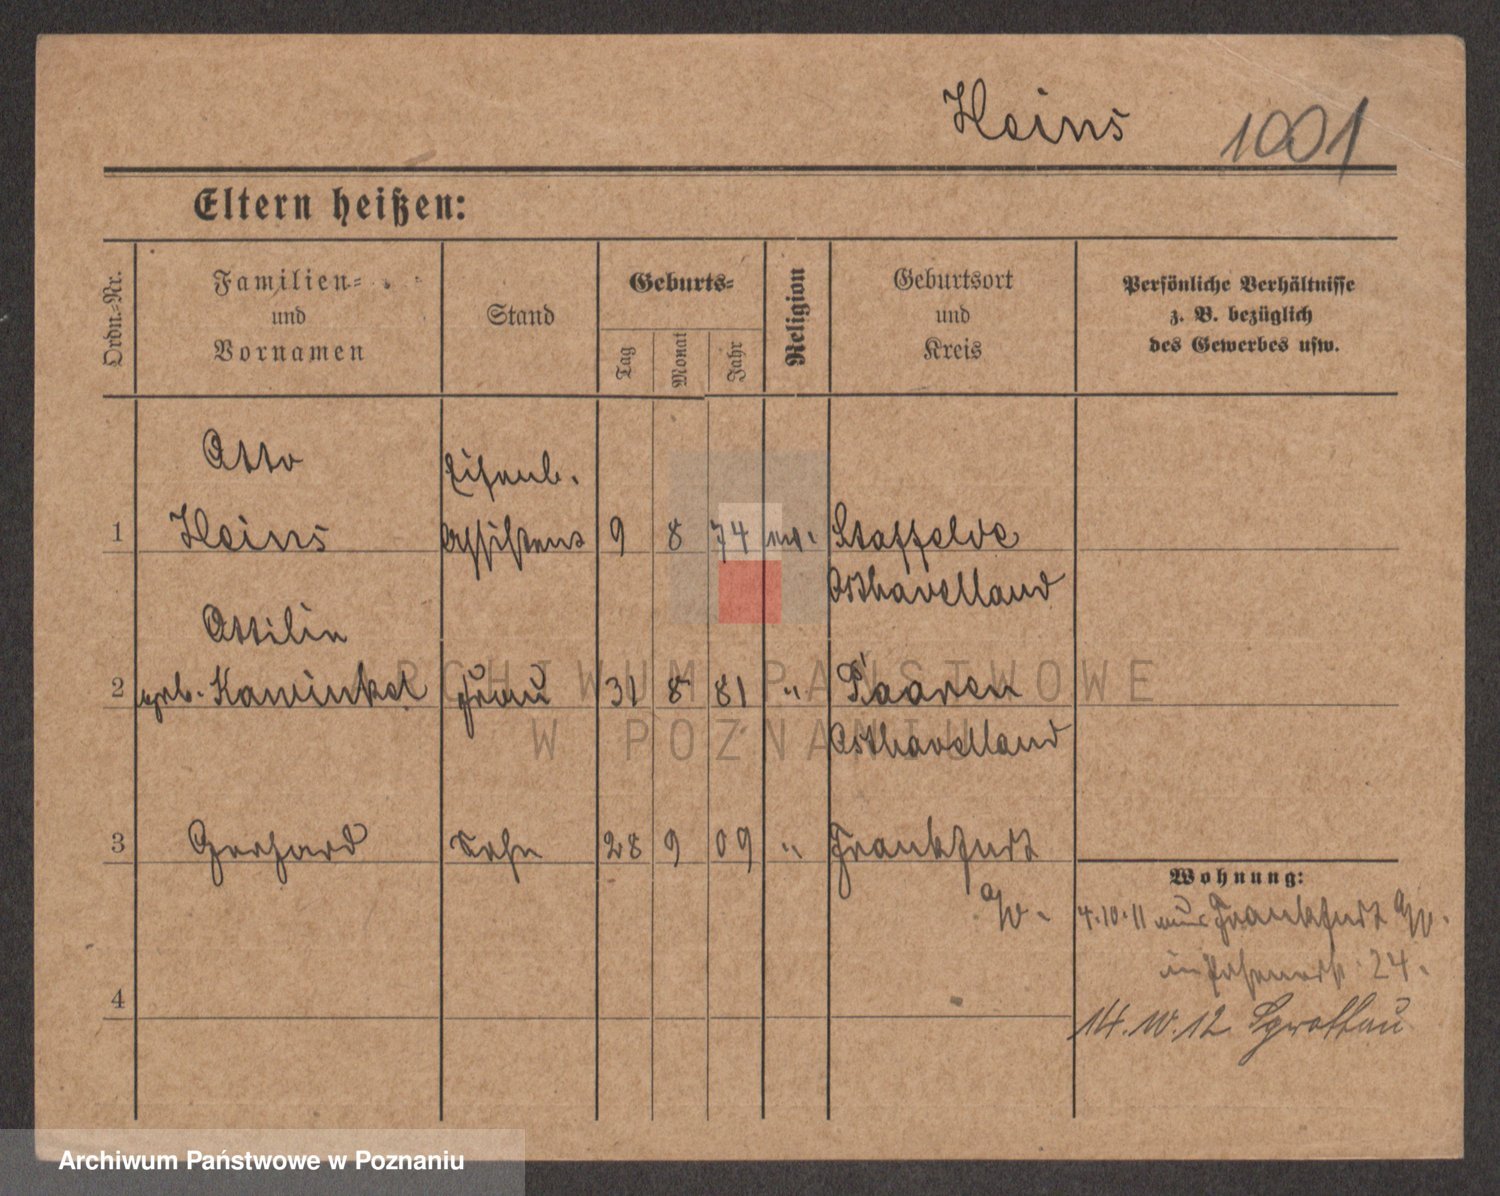 Heins 1001
Eltern heißen:
Ordn.-Nr.
Familien-
und
Vornamen
Stand
Geburts-
Tag
Monat
Jahr
Religion
Geburtsort
und
Kreis
Persönliche Verhältnisse
z. B. bezüglich
des Gewerbes usw.
Otto
Eisenb.
1 Heins Assistent 9 8 74 ev. Staffelde
Osthavelland
Ottilie
2 geb. Kawinkel Frau 31 8 81 " Paaren
Osthavelland
3 Gerhard Sohn 28 9 09 " Frankfurt
a/O.
Wohnung:
4.10.11 aus Frankfurt a/O.
in Posenerstr. 24.
4
14.10.12 Sprottau
ARCHIWUM PAŃSTWOWE
W POZNANIU
Archiwum Państwowe w Poznaniu